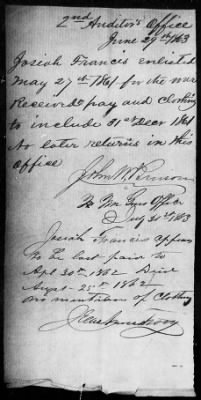 2nd Auditor's Office
June 29th 1863
Josiah Francis enlisted
May 27th 1861 for the war
Received pay and clothing
to include 31st Decr 1861
No later returns in this
office
John W
Josiah Francis appears
to be last paid to
Apl 30th 1862 Died
Augt 25th 1862
no mention of Clothing